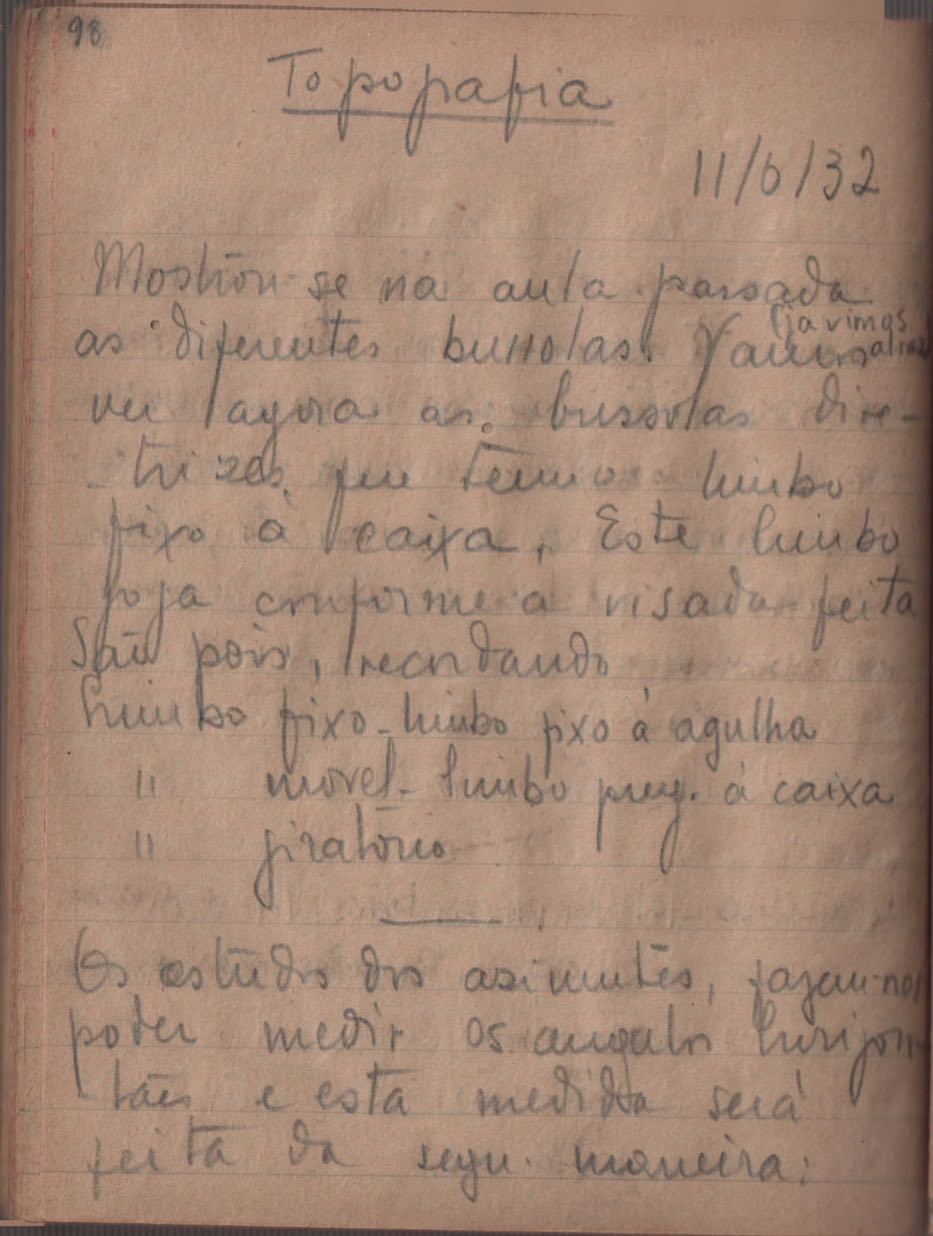 98
Topografia
11/6/32
Mostrou-se na aula passada
as diferentes bussolas. Vamos (ja vimos aliaz
ver agora as bussolas dire-
trizes, que temos limbo
fixo á caixa. Este limbo
joga conforme a visada feita
São pois, recordando
Limbo fixo - limbo fixo á agulha
" movel - limbo preg. á caixa
" giratório
Os estudos dos azimutes, fazem-nos
poder medir os angulos horizon-
táes e esta medida será
feita da segu. maneira: